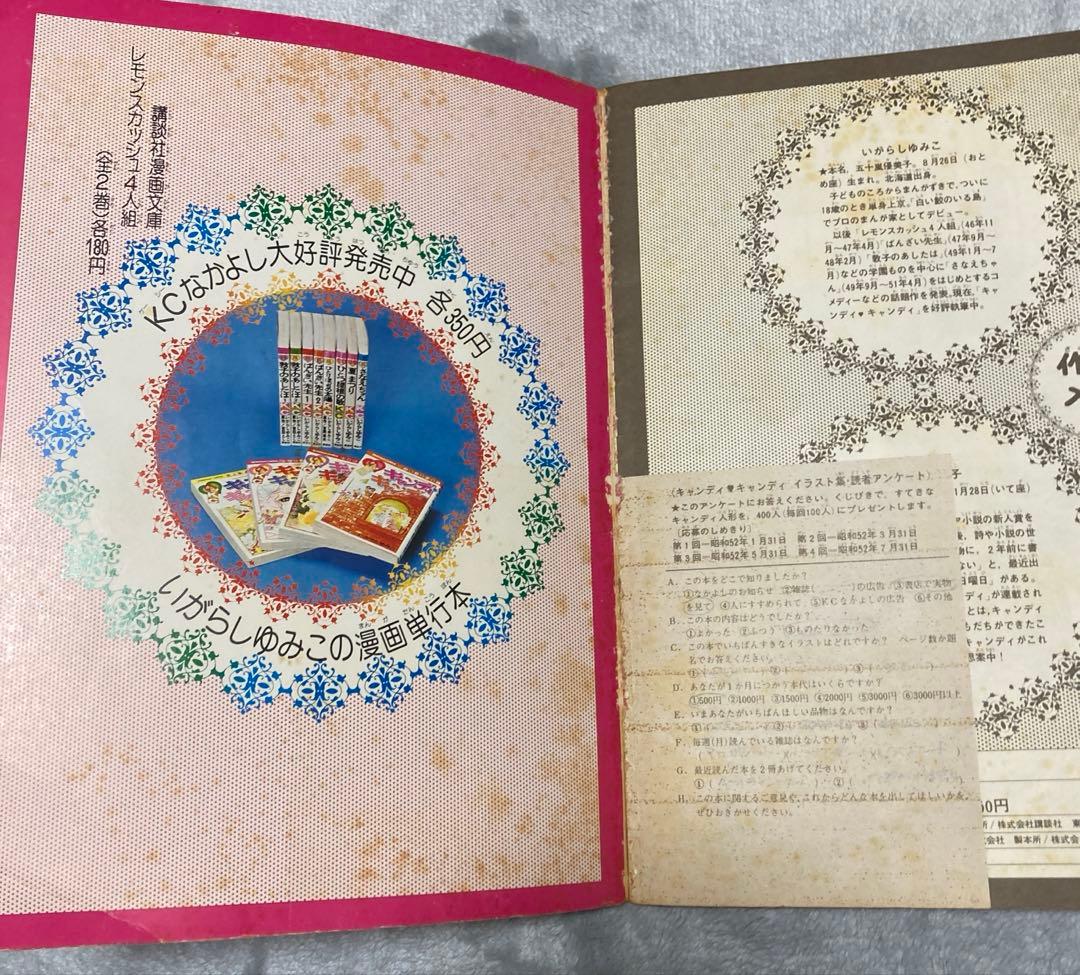 講談社漫画文庫
レモンスカッシュ4人組
〈全2巻〉各180円
KCなかよし大好評発売中 各350円
いがらしゆみこの漫画単行本
いがらしゆみこ
★本名，五十嵐優美子。8月26日（おと
め座）生まれ。北海道出身。
子どものころからまんがずきで，ついに
18歳のとき単身上京。「白い鮫のいる島」
でプロのまんが家としてデビュー。
以後「レモンスカッシュ4人組」(46年11
月〜47年4月)「ばんざい先生」(47年9月〜
48年2月)「敬子のあしたは」(49年1月〜7
月)などの学園ものを中心に「さなえちゃ
ん」(49年9月〜51年4月)をはじめとするコ
メディーなどの話題作を発表。現在，「キャ
ンディ♥キャンディ」を好評執筆中。
子
1月28日（いて座）
小説の新人賞を
後，詩や小説の世
物に，2年前に書
ない」と，最近出
日曜日」がある。
ディ」が連載され
とは，キャンディ
もだちができたこ
キャンディがこれ
思案中！
〈キャンディ♥キャンディ イラスト集・読者アンケート〉
★このアンケートにお答えください。くじびきで，すてきな
キャンディ人形を，400人(毎回100人)にプレゼントします。
〔応募のしめきり〕
第1回—昭和52年1月31日 第2回—昭和52年3月31日
第3回—昭和52年5月31日 第4回—昭和52年7月31日
A．この本をどこで知りましたか？
①なかよしのお知らせ ②雑誌( )の広告 ③書店で実物
を見て ④人にすすめられて ⑤KCなかよしの広告 ⑥その他
B．この本の内容はどうでしたか？
①よかった ②ふつう ③ものたりなかった
C．この本でいちばんすきなイラストはどれですか？ ページ数か題
名でお答えください。
①( ) ②( ) ③( )
D．あなたが1か月につかう本代はいくらですか？
①500円 ②1000円 ③1500円 ④2000円 ⑤3000円 ⑥3000円以上
E．いまあなたがいちばんほしい品物はなんですか？
①( ) ②( ) ③( )
F．毎週(月)読んでいる雑誌はなんですか？
G．最近読んだ本を2冊あげてください。
①( ) ②( )
H．この本に関するご意見や，これからどんな本を出してほしいかを，
ぜひおきかせください。
0円
所/株式会社講談社 東
会社 製本所/株式会